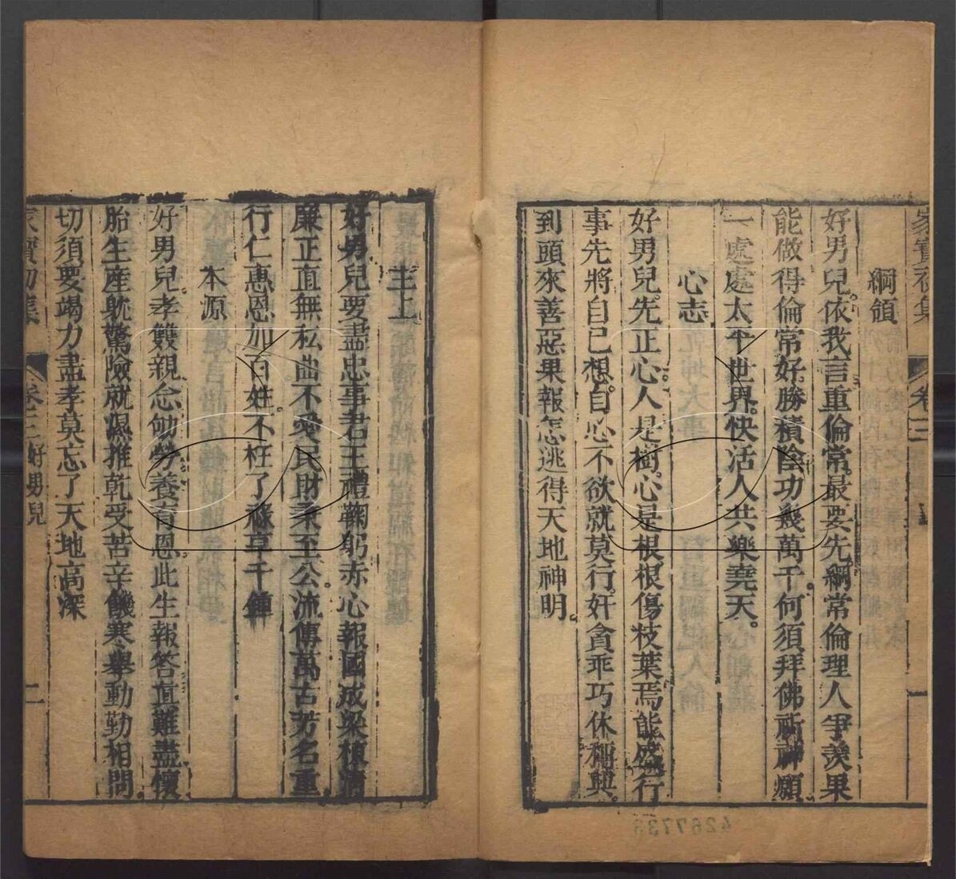 家寶初集 卷三 一
綱領
好男兒依我言重倫常最要先綱常倫理人爭羨果
能做得倫常好勝積陰功幾萬千何須拜佛祈神願
一處處太平世界快活人共樂堯天
心志
好男兒先正心人是樹心是根根傷枝葉焉能盛行
事先將自己想自心不欲就莫行奸貪乖巧休稱與
到頭來善惡果報怎逃得天地神明
主上
好男兒要盡忠事君王禮鞠躬赤心報國成梁棟清
廉正直無私曲不愛民財秉至公流傳萬古芳名重
行仁惠恩加百姓不枉了祿享千鍾
本源
好男兒孝雙親念劬勞養育恩此生報答真難盡懷
胎生產躭驚險就濕推乾受苦辛饑寒舉動勤相問
切須要竭力盡孝莫忘了天地高深
家寶初集 卷三 好男兒 二
4267733